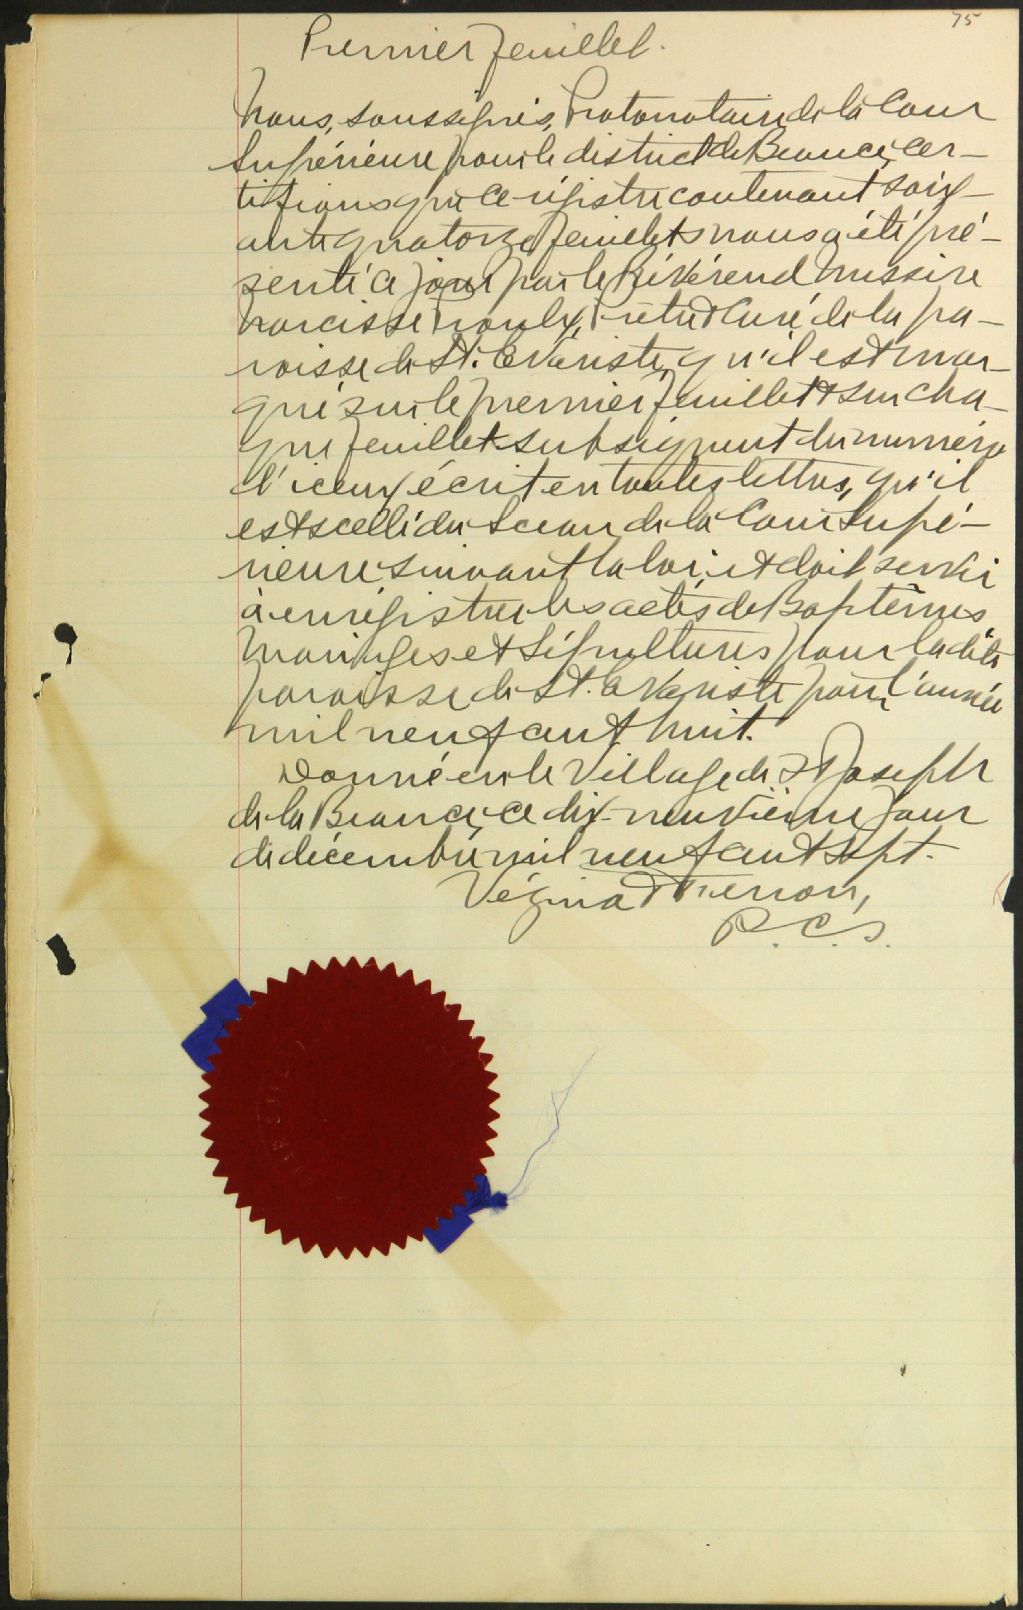 75
Premier feuillet.
Nous, soussignés, Protonotaire de la Cour
Supérieure pour le district de Beauce, cer-
tifions que ce régistre contenant soix-
ante quatorze feuillets nous a été pré-
senté ce jour par le Révérend Messire
Narcisse Proulx, Prêtre & Curé de la pa-
roisse de St. Evariste, qu'il est mar-
qué sur le premier feuillet & sur cha-
que feuillet subséquent du numéro
d'iceux écrit en toutes lettres, qu'il
est scellé du Sceau de la Cour Supé-
rieure suivant la loi, et doit servir
à enrégistrer les actes de Baptêmes
Mariages et Sépultures pour la dite
paroisse de St. Evariste pour l'année
mil neuf cent huit.
Donné en le Village de St Joseph
de la Beauce, ce dix-neuvième jour
de décembre mil neuf cent sept.
Vézina &
P.C.S.